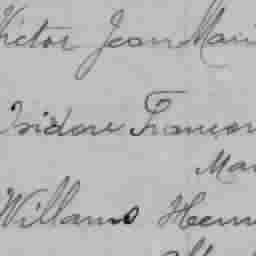 Victor Jean Mari
Isidore Françoi
Mar
Williams Henri